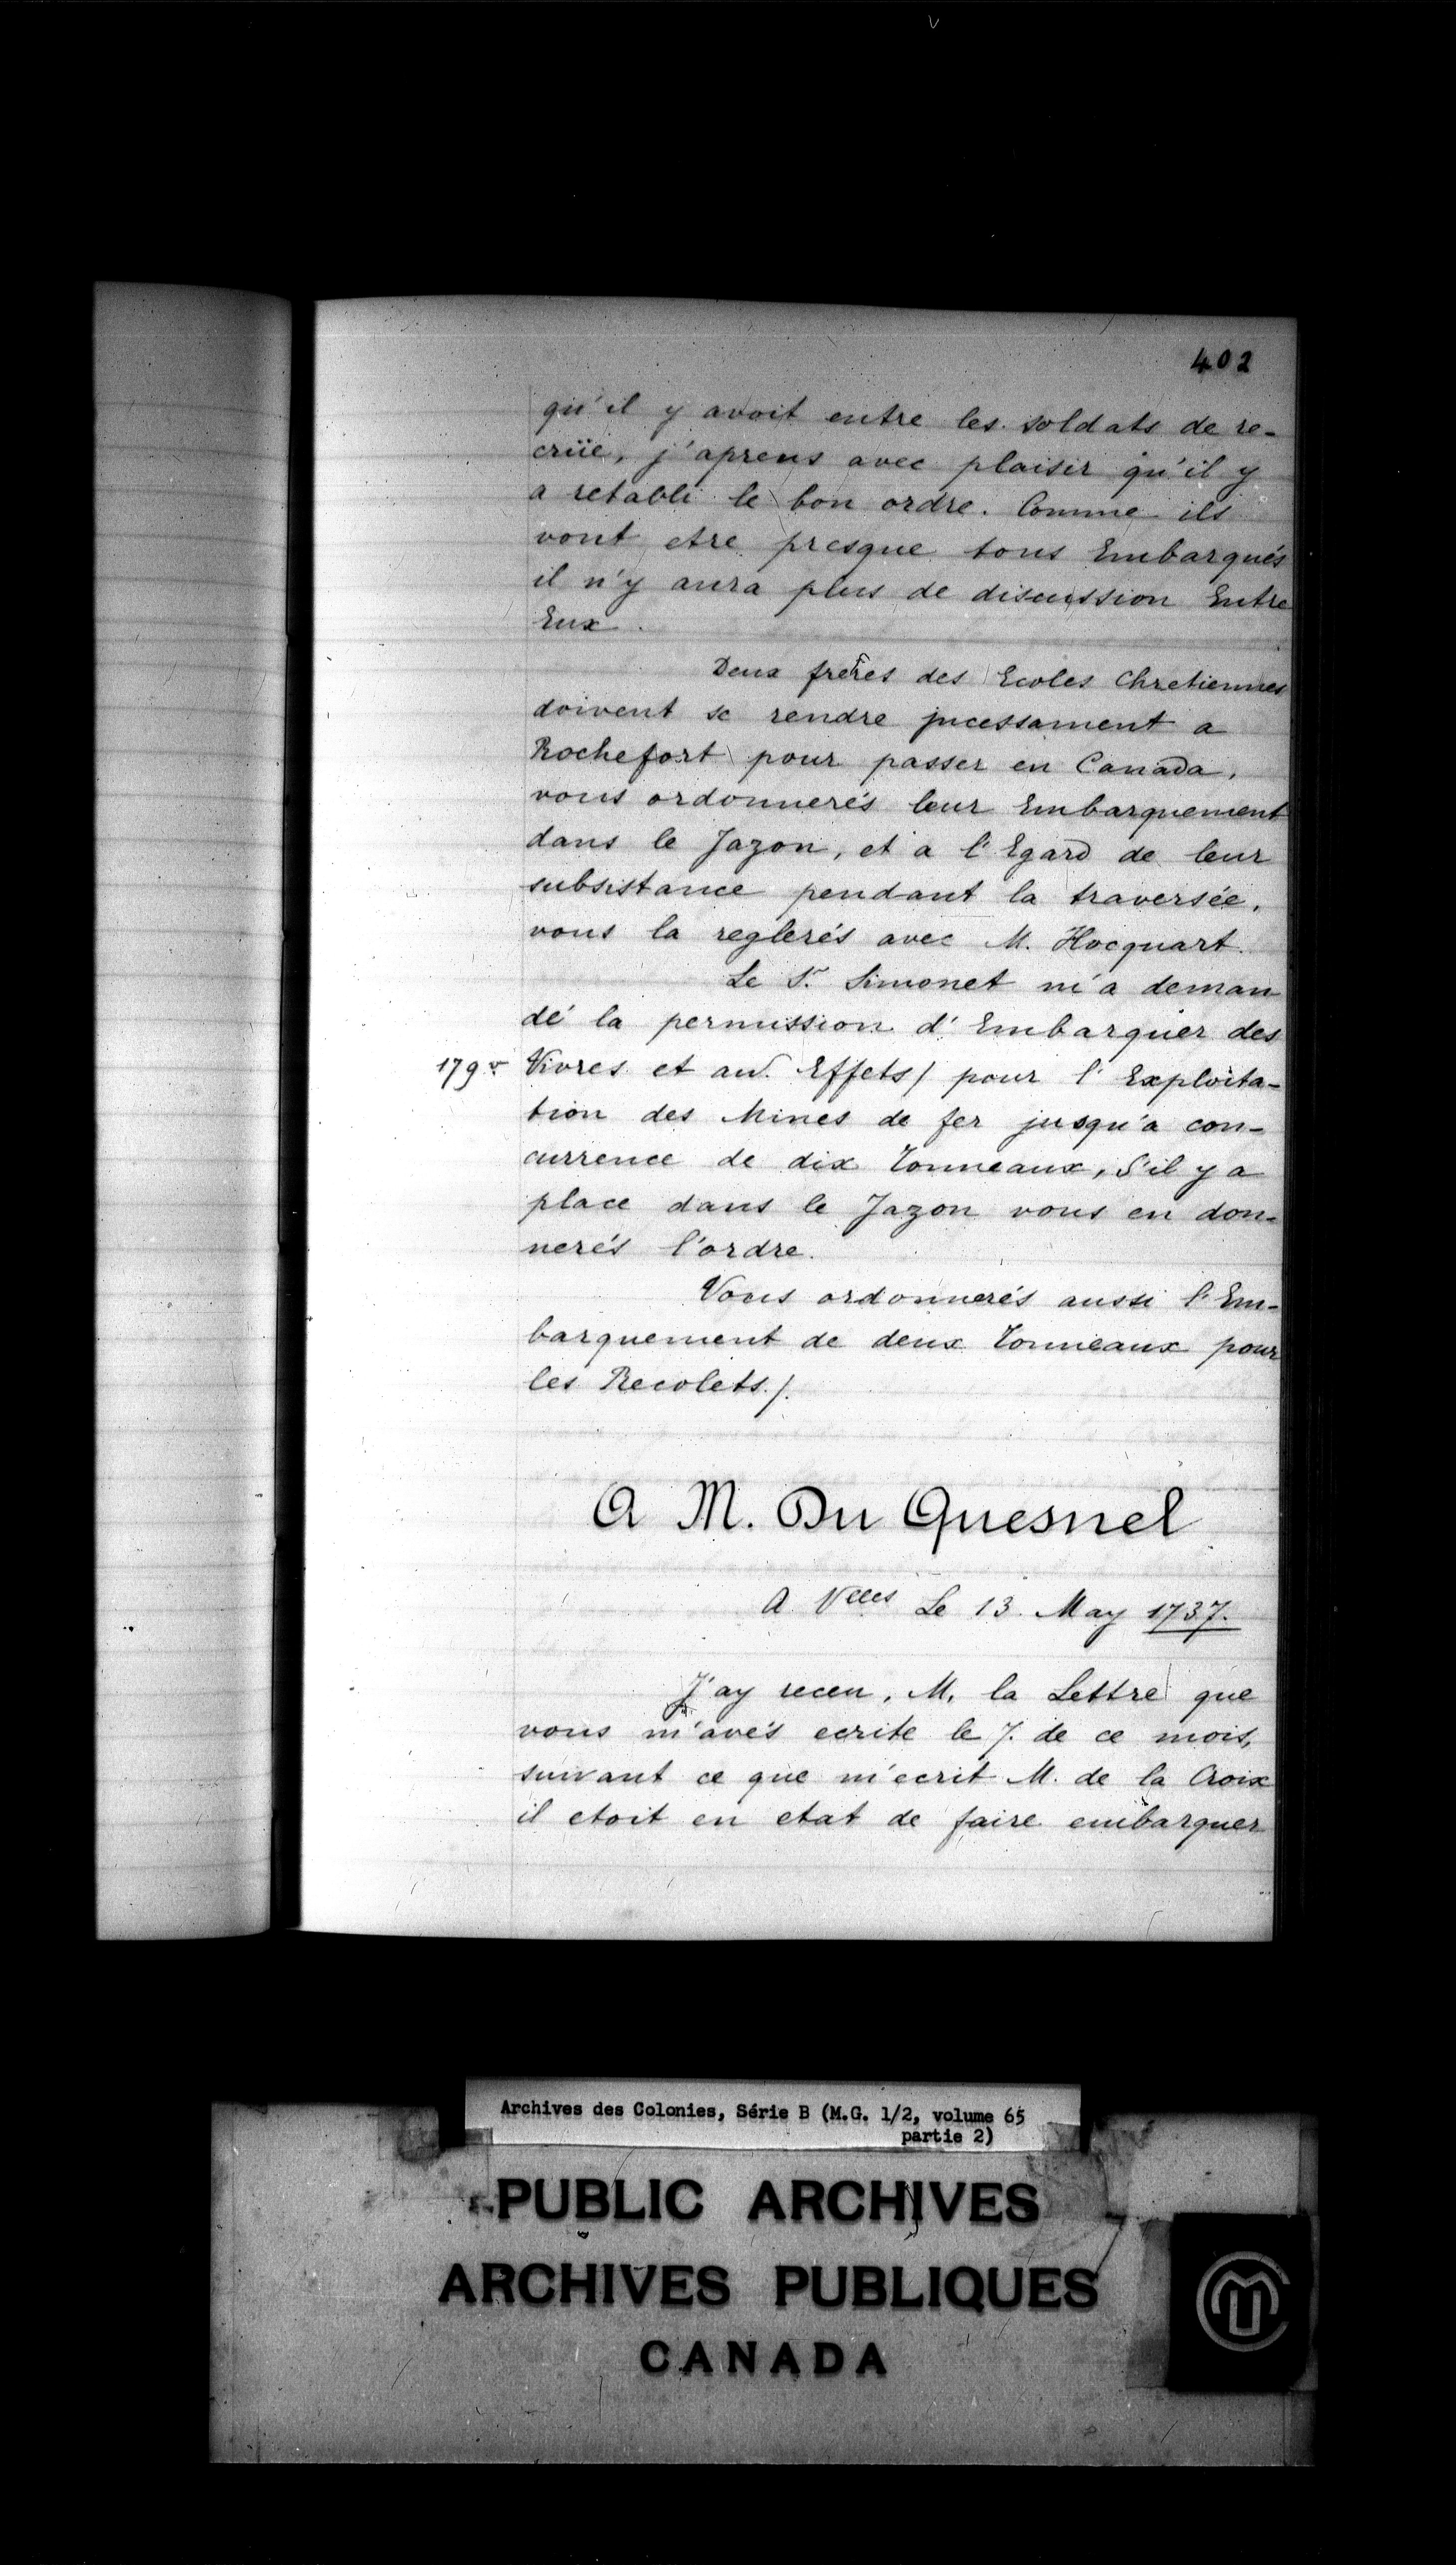 402
qu'il y avoit entre les soldats de re-
crüe, j'aprens avec plaisir qu'il y
a retabli le bon ordre. Comme ils
vont etre presque tous Embarqués
il n'y aura plus de discussion Entre
Eux.
Deux freres des Ecoles Chretiennes
doivent se rendre jncessament a
Rochefort pour passer en Canada,
vous ordonnerés leur Embarquement
dans le Jazon, et a l'Egard de leur
subsistance pendant la traversée,
vous la reglerés avec M. Hocquart.
Le Sr. Simonet m'a deman
dé la permission d'Embarquer des
179v Vivres et au. Effets/ pour l'Exploita-
tion des Mines de fer jusqu'a con-
currence de dix Tonneaux, S'il y a
place dans le Jazon vous en don-
nerés l'ordre.
Vous ordonnerés aussi l'Em-
barquement de deux Tonneaux pour
les Recolets./.
A M. Du Quesnel
A Vlles Le 13. May 1737.
J'ay receu, M, la Lettre que
vous m'avés ecrite le 7. de ce mois,
suivant ce que m'ecrit M. de la Croix
il etoit en etat de faire embarquer
Archives des Colonies, Série B (M.G. 1/2, volume 65
partie 2)
PUBLIC ARCHIVES
ARCHIVES PUBLIQUES
CANADA